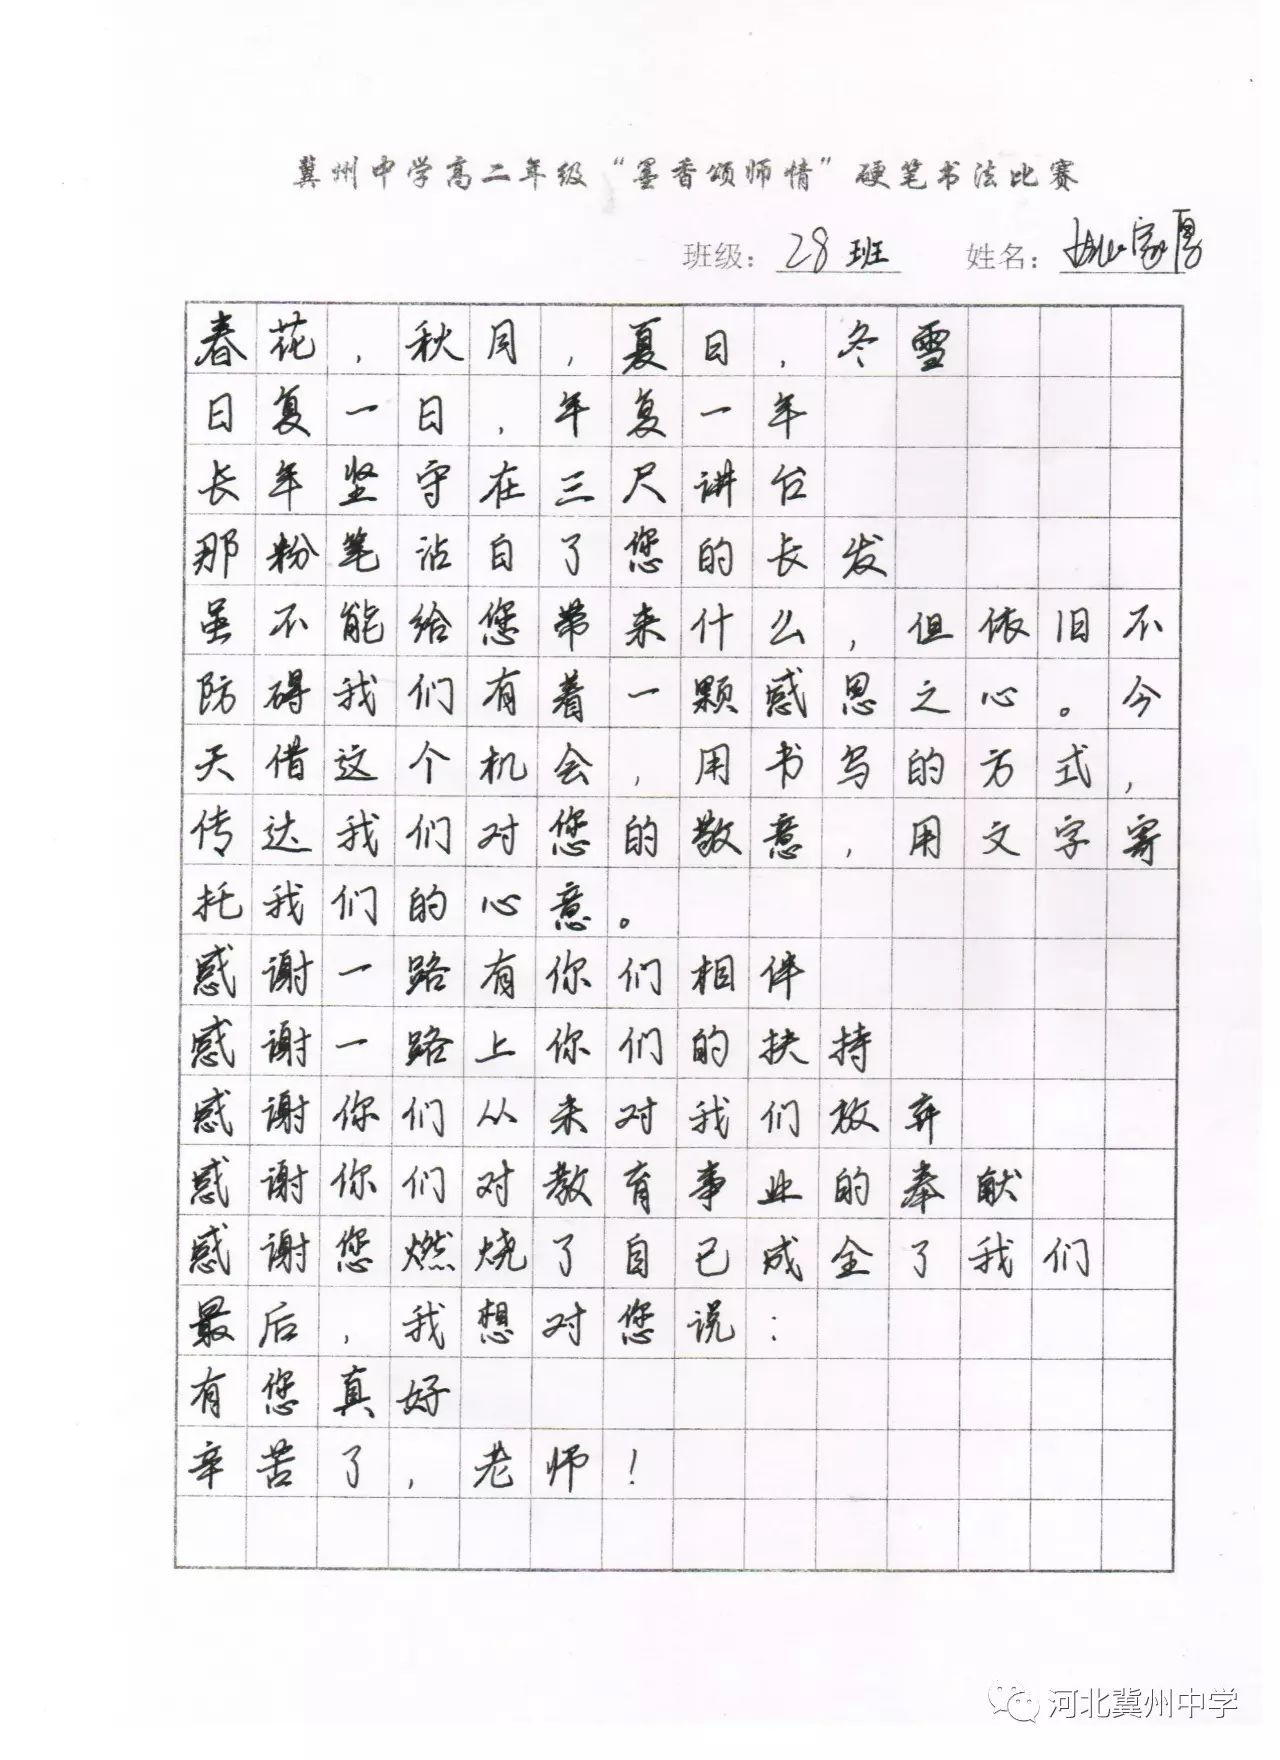 冀州中学高二年级“墨香颂师情”硬笔书法比赛
班级：28班 姓名：姚家勇
春花，秋月，夏日，冬雪
日复一日，年复一年
长年坚守在三尺讲台
那粉笔沾白了您的长发
虽不能给您带来什么，但依旧不
防碍我们有着一颗感恩之心。今
天借这个机会，用书写的方式，
传达我们对您的敬意，用文字寄
托我们的心意。
感谢一路有你们相伴
感谢一路上你们的扶持
感谢你们从未对我们放弃
感谢你们对教育事业的奉献
感谢您燃烧了自己成全了我们
最后，我想对您说：
有您真好
辛苦了，老师！
河北冀州中学